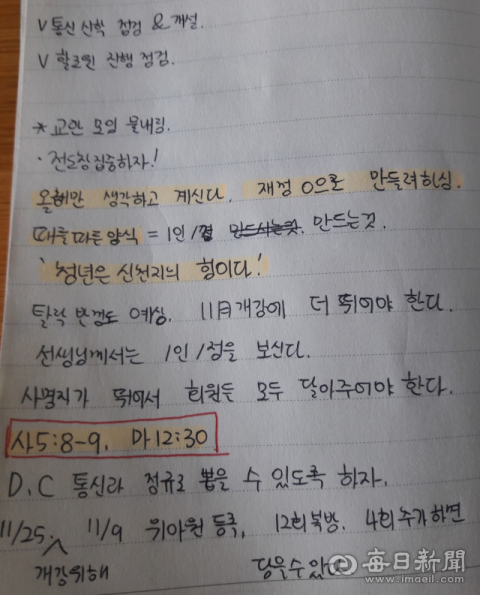 V 통신 신학 점검 & 개설.
V 할로윈 진행 점검.
* 교안 모임 물내림.
· 전도집중하자!
올해만 생각하고 계신다. 재정 0으로 만들려하심.
때를 따른 양식 = 1인 1명 만드시는것. 만드는것.
'청년은 신천지의 힘이다!'
탈락 반절도 예상. 11月개강에 더 뛰어야 한다.
선생님께서는 1인 1명을 보신다.
사명자가 뛰어서 회원들 모두 달아주어야 한다.
사5:8-9. 마12:30
D.C 통신과 정규로 뽑을 수 있도록 하자.
11/25. 11/9 위아원 등록, 12회 복방. 4회 추가하면
개강위해 닿을수있다
每日新聞
www.imaeil.com